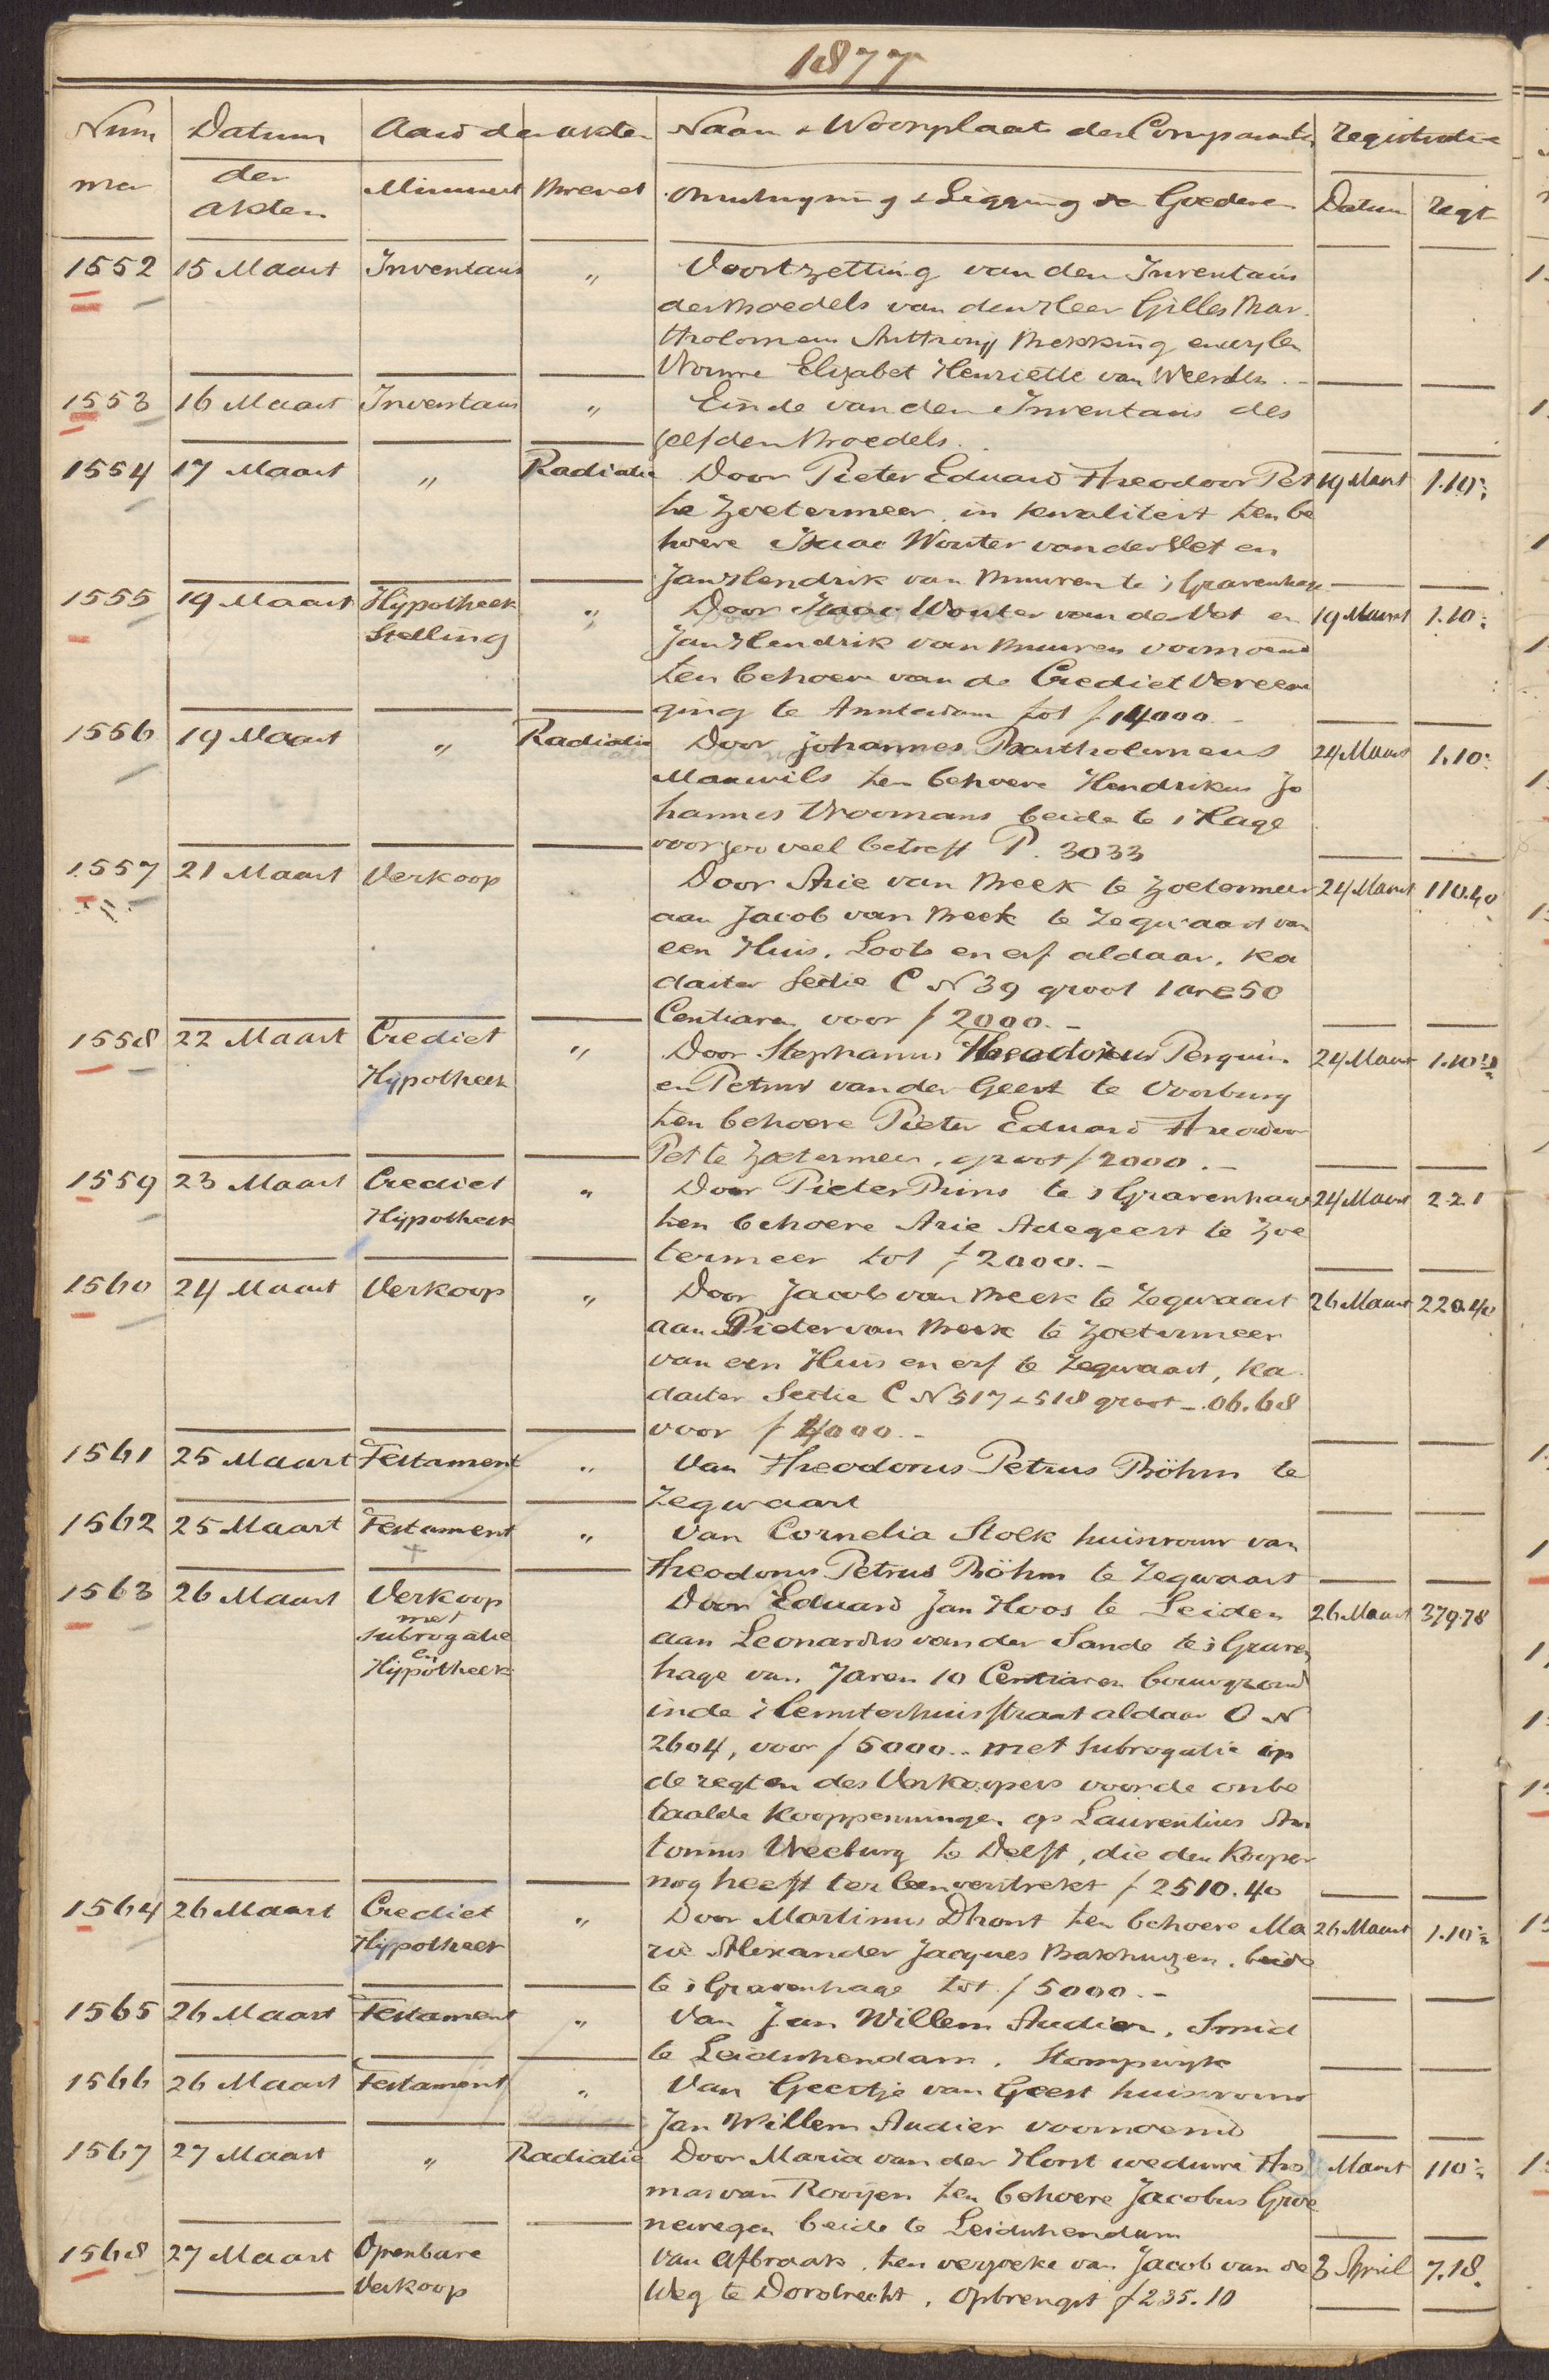 1877
Nummer Datum der akten Aard der akten Naam & Woonplaats der Comparanten Registratie
Minuut Brevet Omschrijving & Ligging der Goederen Datum Regt
1552 15 Maart Inventaris " Voortzetting van den Inventaris
des Boedels van den Heer Gilles Bar-
tholomeus Anthonij Bekking en wijlen
Vrouwe Elizabet Henriette van Weerden.-
1553 16 Maart Inventaris " Einde van den Inventaris des
zelfden Boedels.
1554 17 Maart " Radiatie Door Pieter Eduard Theodoor Pet 19 Maart 1.10
te Zoetermeer, in kwaliteit ten be
hoeve Isaac Wouter van der Vet en
Jan Hendrik van Buuren te 'sGravenhage
1555 19 Maart Hypotheek " Door Isaac Wouter van der Vet en 19 Maart 1.10
Stelling Jan Hendrik van Buuren voornoemd
ten behoeve van de Crediet Vereeni
ging te Amsterdam tot f 14000 -
1556 19 Maart " Radiatie Door Johannes Bartholomeus 24 Maart 1.10
Manwils ten behoeve Hendrikus Jo
hannes Vroomans beide te 'sHage
voor zoo veel betreft P. 3033
1557 21 Maart Verkoop Door Arie van Beek te Zoetermeer 24 Maart 110.40
aan Jacob van Beek te Zegwaart van
een Huis, Loots en erf aldaar, Ka
daster Sectie C N 39 groot 1 are 50
Centiaren voor f 2000.-
1558 22 Maart Crediet " Door Stephanus Theodorus Perquin 24 Maart 1.10
Hypotheek en Petrus van der Geest te Voorburg
ten behoeve Pieter Eduard Theodoor
Pet te Zoetermeer, groot f 2000.-
1559 23 Maart Crediet " Door Pieter Prins te 'sGravenhage 24 Maart 2.21
Hypotheek ten behoeve Arie Adegeest te Zoe
termeer tot f 2000.-
1560 24 Maart Verkoop " Door Jacob van Beek te Zegwaart 26 Maart 220.40
aan Pieter van Beek te Zoetermeer
van een Huis en erf te Zegwaart, Ka
daster Sectie C N 517 & 518 groot -.06.68
voor f 4000.-
1561 25 Maart Testament " Van Theodorus Petrus Böhm te
Zegwaart
1562 25 Maart Testament " Van Cornelia Stolk huisvrouw van
Theodorus Petrus Böhm te Zegwaart
1563 26 Maart Verkoop Door Eduard Jan Hoos te Leiden 26 Maart 379.78
met
subrogatie aan Leonardus van der Sande te 'sGraven
en
Hypotheek hage van 7 aren 10 Centiaren bouwgrond
in de Hemsterhuisstraat aldaar O N
2604, voor f 5000.- met subrogatie op
de regten des Verkoopers voor de onbe
taalde kooppenningen op Laurentius An
tonius Vreeburg te Delft, die den Kooper
nog heeft ter leen verstrekt f 2510.40
1564 26 Maart Crediet " Door Martinus Dhont ten behoeve Ma 26 Maart 1.10
Hypotheek rie Alexander Jacques Bakhuizen, beide
te 'sGravenhage tot f 5000.-
1565 26 Maart Testament " Van Jan Willem Audier, Smid
te Leidschendam, Stompwijk
1566 26 Maart Testament " Van Geertje van Geest huisvrouw
Jan Willem Audier voornoemd
1567 27 Maart " Radiatie Door Maria van der Horst weduwe Tho Maart 110
mas van Rooijen ten behoeve Jacobus Groe
newegen beide te Leidschendam
1568 27 Maart Openbare Van afbraak, ten verzoeke van Jacob van de 3 April 7.18
Verkoop Weg te Dordrecht, opbrengst f 235.10